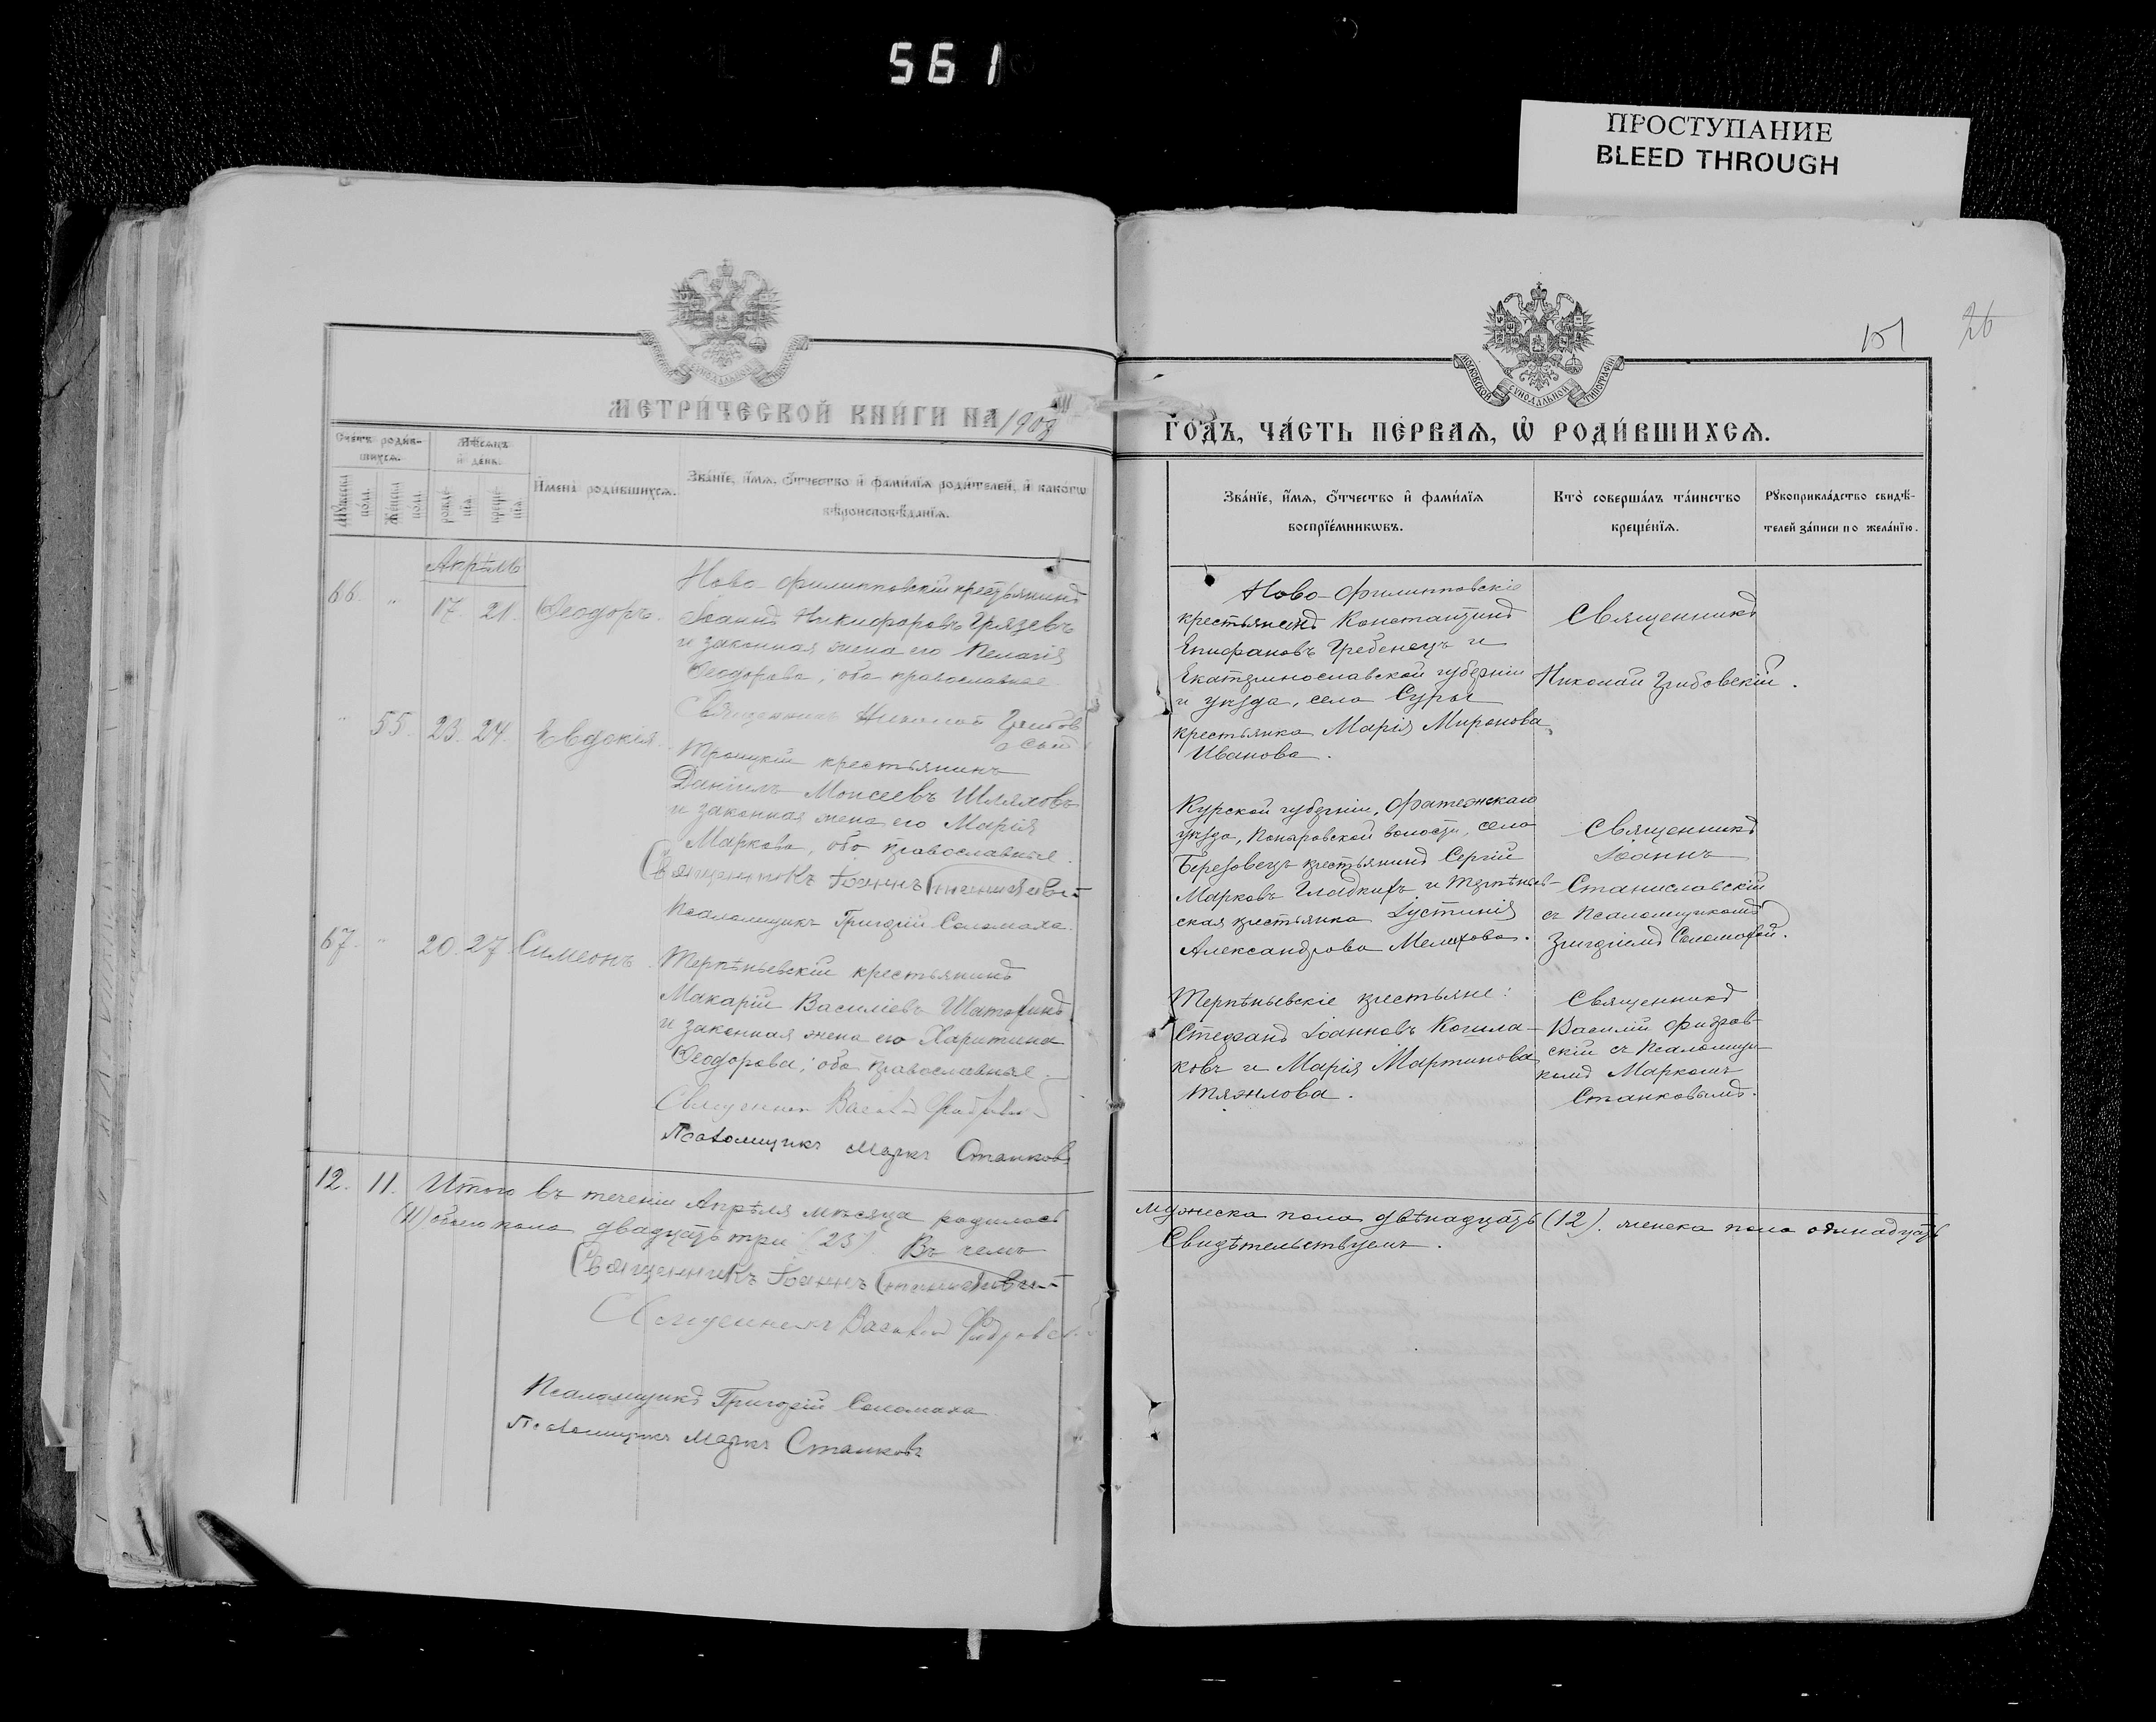 561
ПРОСТУПАНИЕ
BLEED THROUGH
МЕТРИЧЕСКОЙ КНИГИ НА 1908
Счетъ родив-
шихся.
Мѣсяцъ
и день.
Мужеска пола.
Женска пола.
рожде-
нія.
креще-
нія.
Имена родившихся.
Званіе, имя, отчество и фамилія родителей, и какого
вѣроисповѣданія.
Апрѣль
66. " 17. 21. Ѳеодоръ.
Ново-Филипповскій крестьянинъ
Іоаннъ Никифоровъ Грязевъ
и законная жена его Пелагія
Ѳеодорова, оба православные
Священникъ Николай Грибов
скій
" 55. 23. 24. Евдокія.
Троицкій крестьянинъ
Даніилъ Моисеевъ Шляховъ
и законная жена его Марія
Маркова, оба православные.
Священникъ Іоаннъ
Псаломщикъ Григорій Соломаха.
67. " 20. 27. Симеонъ.
Терпѣньевскій крестьянинъ
Макарій Василіевъ Шатохинъ
и законная жена его Харитина
Ѳеодорова, оба православные.
Священникъ Василій
Псаломщикъ Маркъ Станковъ
12. 11. Итого въ теченіи Апрѣля мѣсяца родилось
(11) обоего пола двадцать три (23). Въ чемъ
Священникъ Іоаннъ
Священникъ Василій
Псаломщикъ Григорій Соломаха
Псаломщикъ Маркъ Станковъ
151
26
МОСКОВСКОЙ СУНОДАЛЬНОЙ ТИПОГРАФІИ
ГОДЪ, ЧАСТЬ ПЕРВАЯ, Ѡ РОДИВШИХСЯ.
Званіе, имя, отчество и фамилія
воспріемниковъ.
Кто совершалъ таинство
крещенія.
Рукоприкладство свидѣ-
телей записи по желанію.
Ново-Филипповскіе
крестьянинъ Константинъ
Епифановъ Гребенецъ и
Екатеринославской губерніи
и уѣзда, села Суры
крестьянка Марія Миронова
Иванова.
Священникъ
Николай Грибовскій.
Курской губерніи, Фатежскаго
уѣзда, волости, села
Березовецъ крестьянинъ Сергій
Марковъ Гладкихъ и Терпѣньев-
ская крестьянка Іустинія
Александрова Мелехова.
Священникъ
Іоаннъ
Станиславскій
съ Псаломщикомъ
Григоріемъ Соломахой.
Терпѣньевскіе крестьяне:
Стефанъ Іоанновъ Кошла-
ковъ и Марія Мартинова
Тяжлова.
Священникъ
Василій
скій съ Псаломщи-
комъ Маркомъ
Станковымъ.
мужеска пола двѣнадцать (12). женска пола одинадцать
Свидѣтельствуемъ.